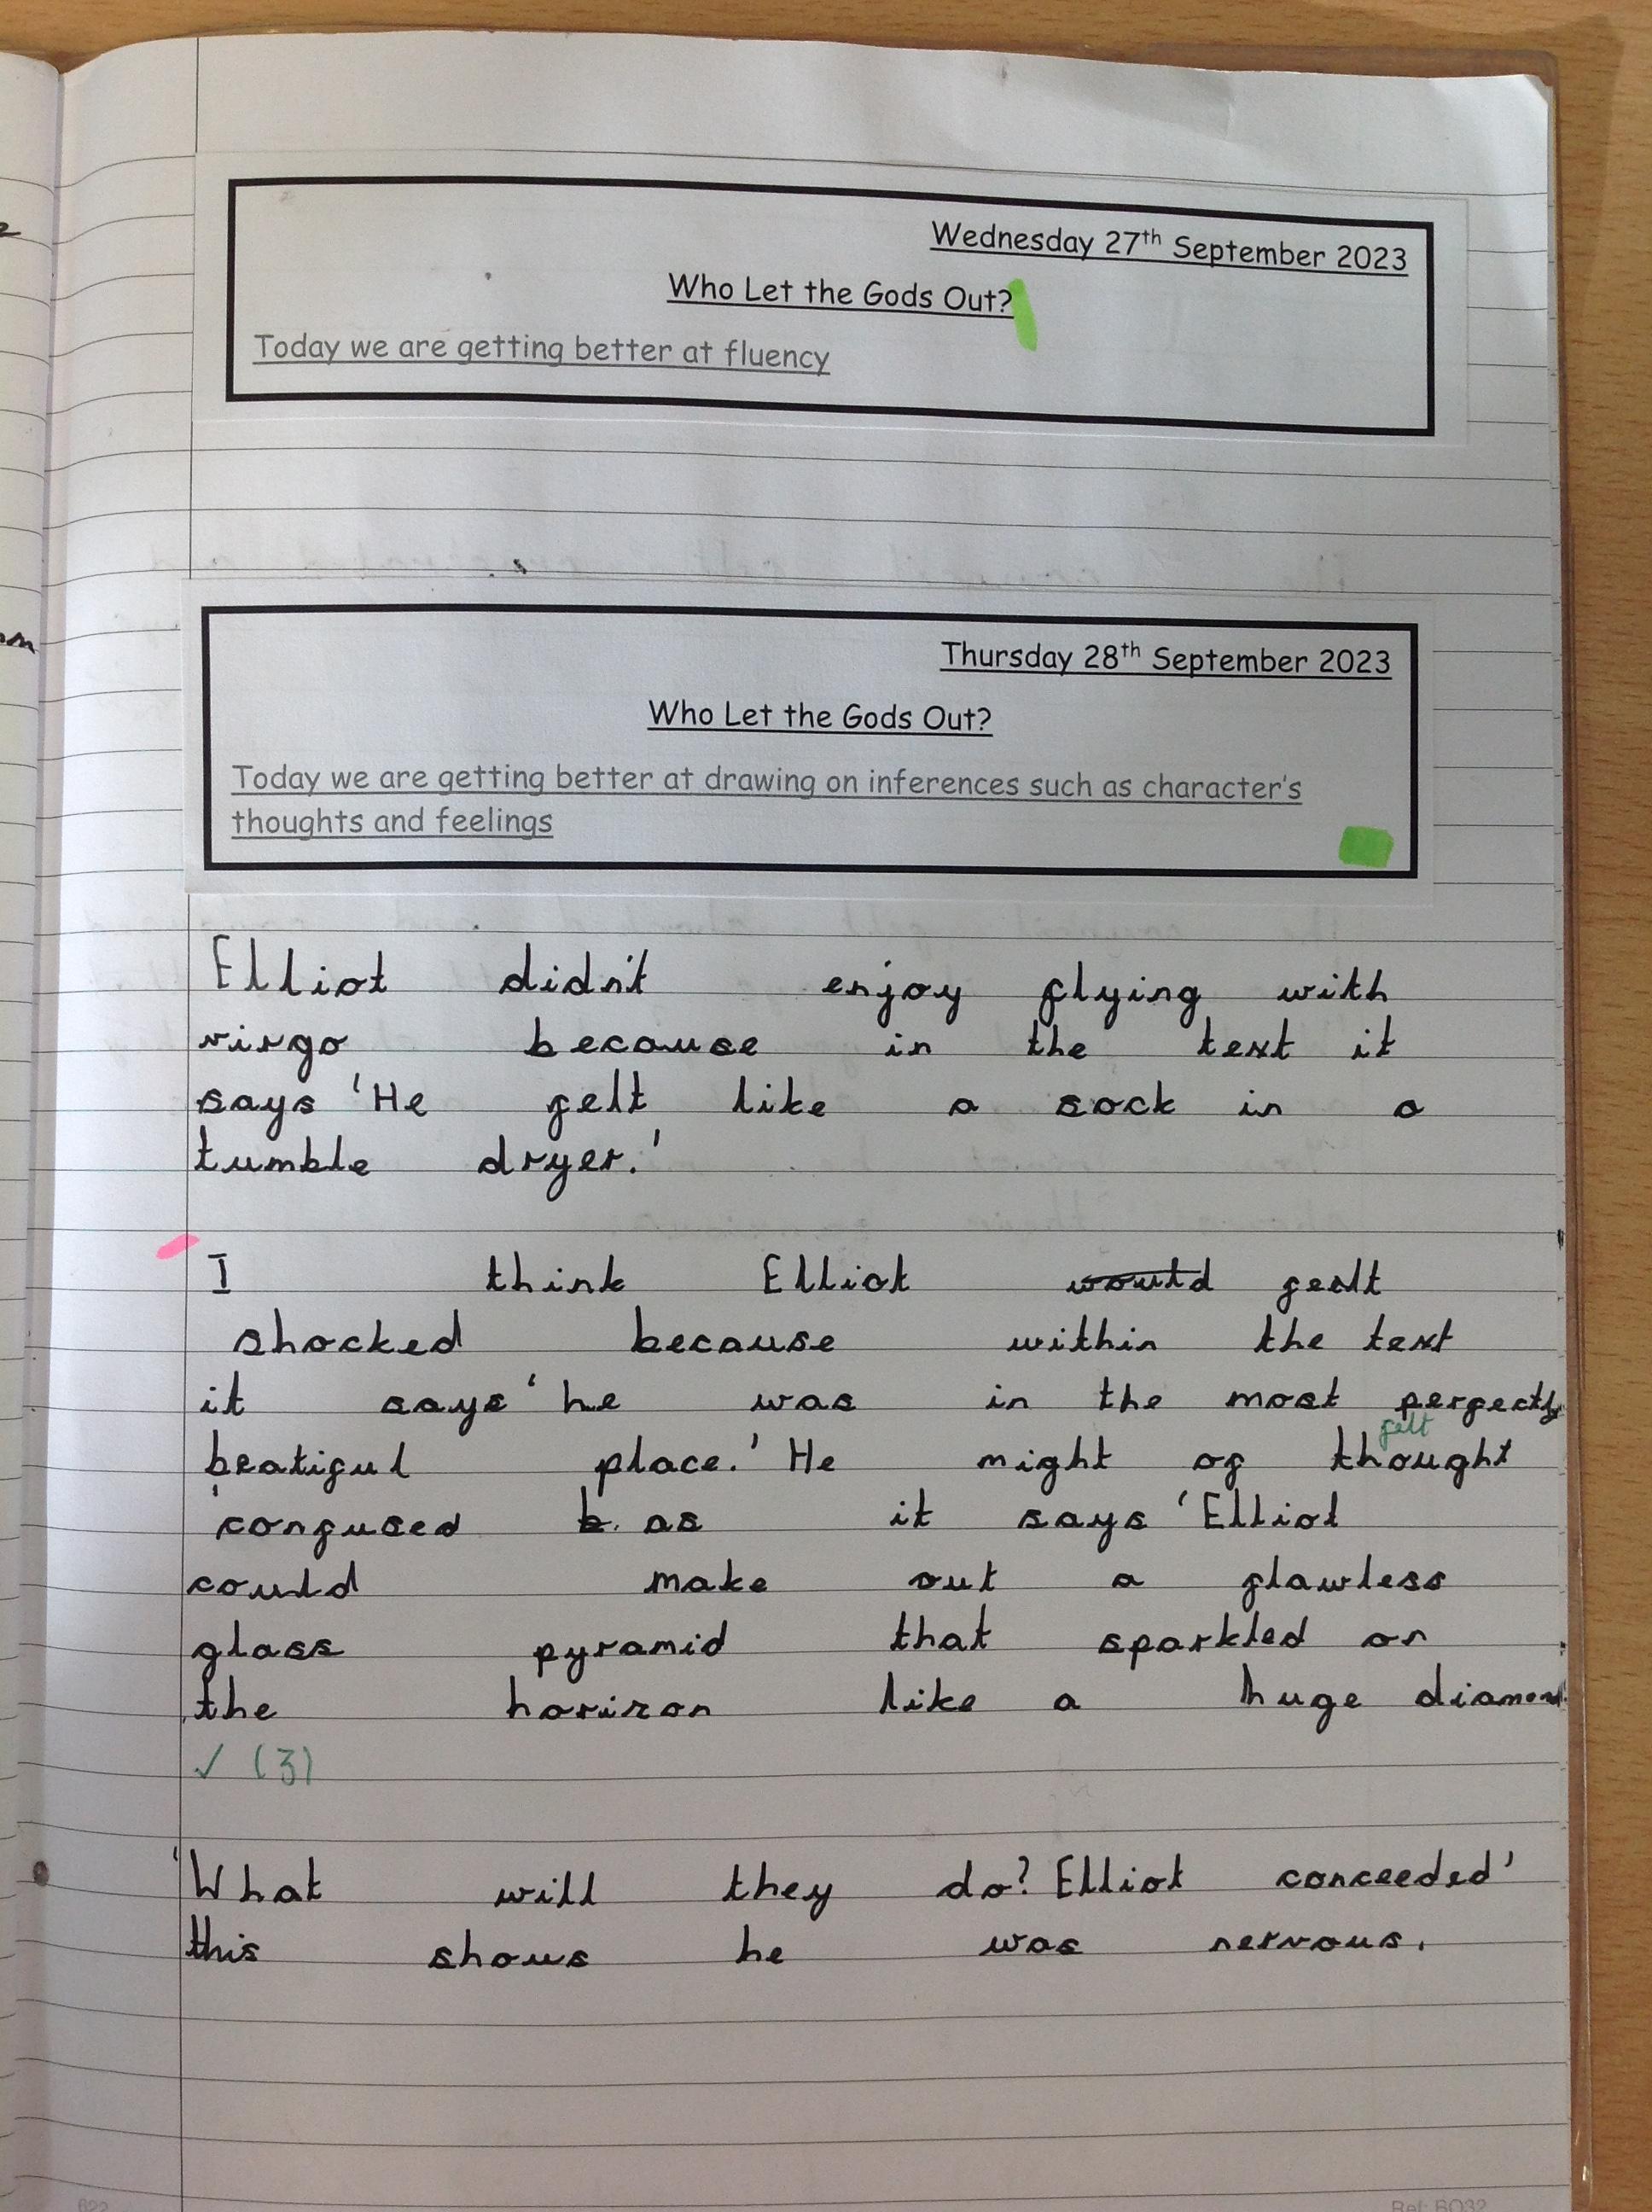 Wednesday 27th September 2023
Who Let the Gods Out?
Today we are getting better at fluency
Thursday 28th September 2023
Who Let the Gods Out?
Today we are getting better at drawing on inferences such as character's
thoughts and feelings
Elliot didn't enjoy flying with
virgo because in the text it
says 'He felt like a sock in a
tumble dryer.'
I think Elliot would fealt
shocked because within the text
it says 'he was in the most perfectly
felt
beatiful place.' He might of thought
confused b. as it says 'Elliot
could make out a flawless
glass pyramid that sparkled on
the horizon like a huge diamond
✓ (3)
'What will they do? Elliot conceeded'
this shows he was nervous.
622
Ref: BO32